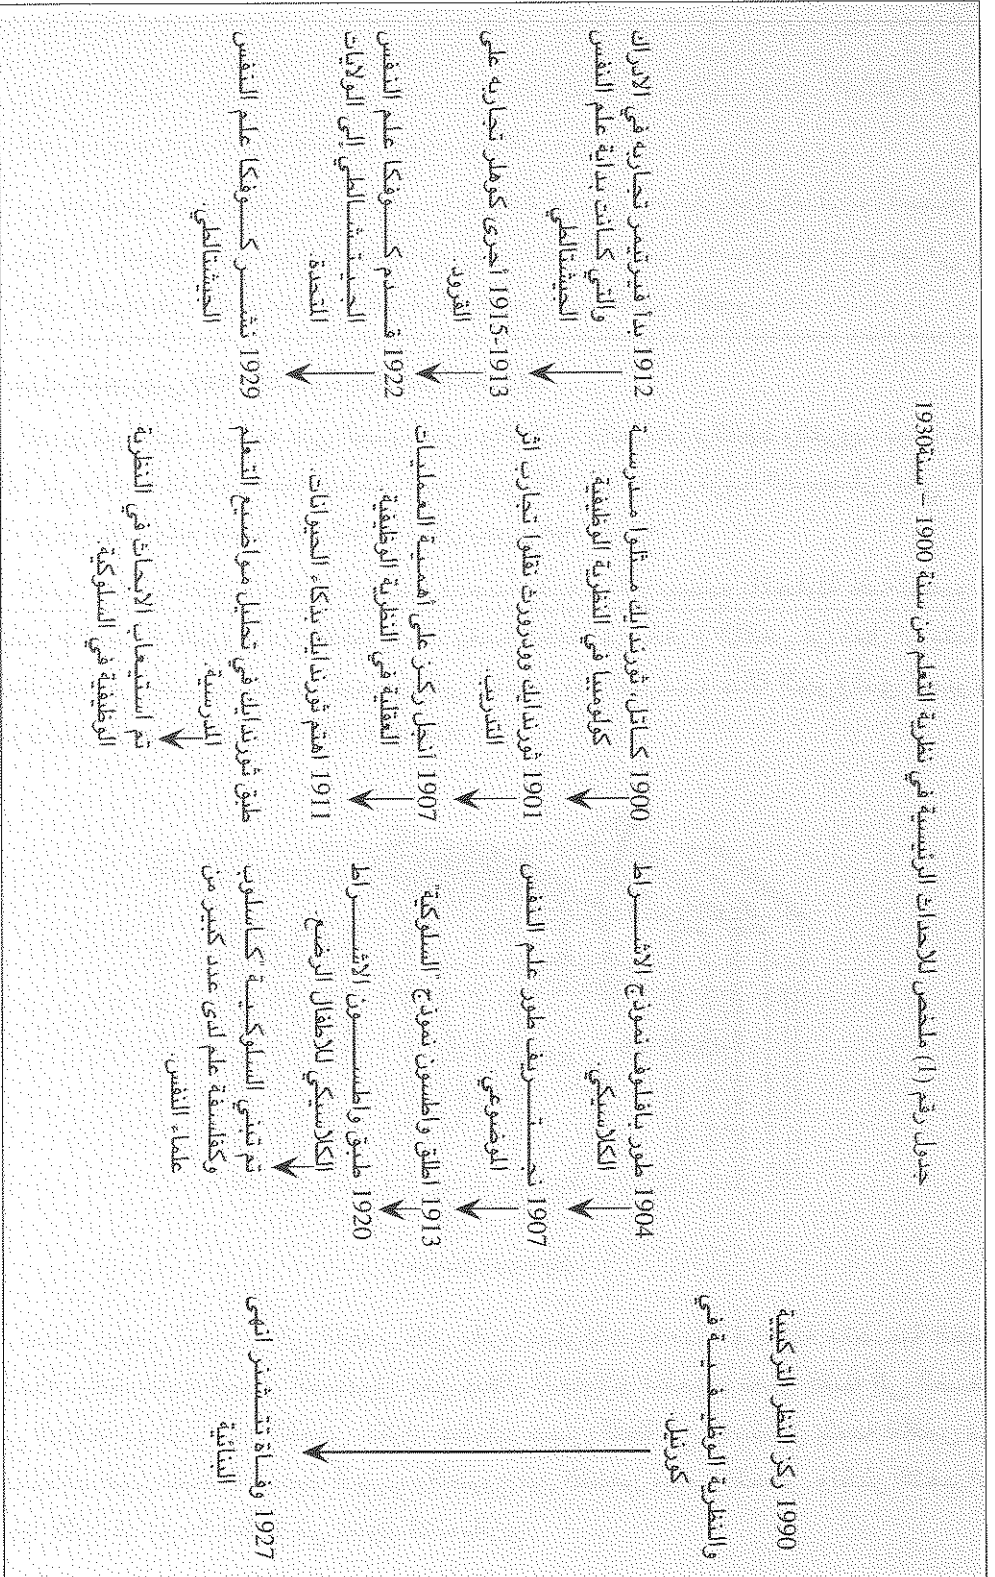 جدول رقم (1) ملخص للاحداث الرئيسية في نظرية التعلم من سنة 1900 – سنة1930
1990 ركز النظر التركيبية
والنظرية الوظيفية في
كورنيل.
1927 وفاة تتشنر انهى
البنائية
1904 طور بافلوف نموذج الاشراط
الكلاسيكي.
1907 نجتريف طور علم النفس
الموضوعي.
1913 اطلق واطسون نموذج "السلوكية"
1920 طبق واطسون الاشراط
الكلاسيكي للاطفال الرضع
تم تبني السلوكية "كاسلوب
وكفلسفة علم لدى عدد كبير من
علماء النفس.
1900 كاتل، ثورندايك مثلوا مدرسة
كولومبيا في النظرية الوظيفية.
1901 ثورندايك وودرورث نقلوا تجارب اثر
التدريب
1907 أنجل ركز على أهمية العمليات
العقلية في النظرية الوظيفية.
1911 اهتم ثورندايك بذكاء الحيوانات.
طبق ثورندايك في تحليل مواضيع التعلم
المدرسية.
تم استيعاب الابحاث في النظرية
الوظيفية في السلوكية.
1912 بدأ فيرتيمر تجاربه في الادراك
والتي كانت بداية علم النفس
الجيشتالطي
1913-1915 أجرى كوهلر تجاربه على
القرود
1922 قدم كوفكا علم النفس
الجيتشالطي إلى الولايات
المتحدة.
1929 نشر كوفكا علم النفس
الجيشتالطي.